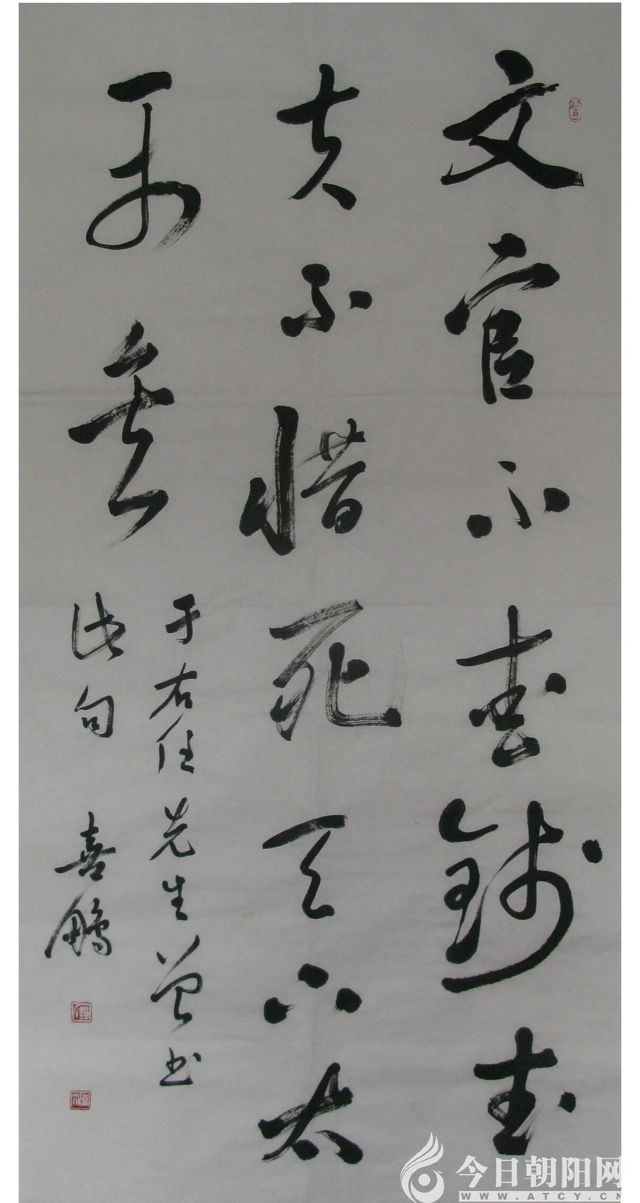 文官不愛錢武
夫不惜死天下太
平矣
于右任先生曾书
此句 喜鹏
今日朝阳网
WWW.ATCY.C